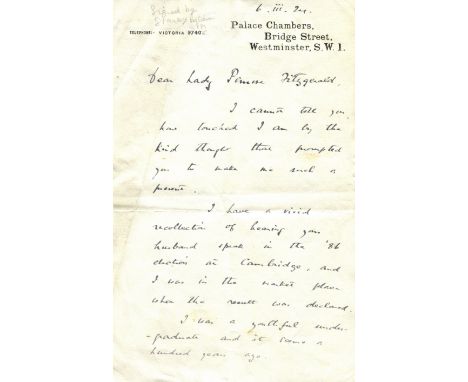 Signed by
Stanley Baldwin
PM
6. III. 24.
TELEPHONE:- VICTORIA 9740.
Palace Chambers,
Bridge Street,
Westminster, S.W.1.
Dear Lady Penrose Fitzgerald,
I cannot tell you
how touched I am by the
kind thought that prompted
you to make me such a
present.
I have a vivid
recollection of hearing your
husband speak in the '86
election at Cambridge, and
I was in the market place
when the result was declared.
I was a youthful under-
-graduate and it seems a
hundred years ago.